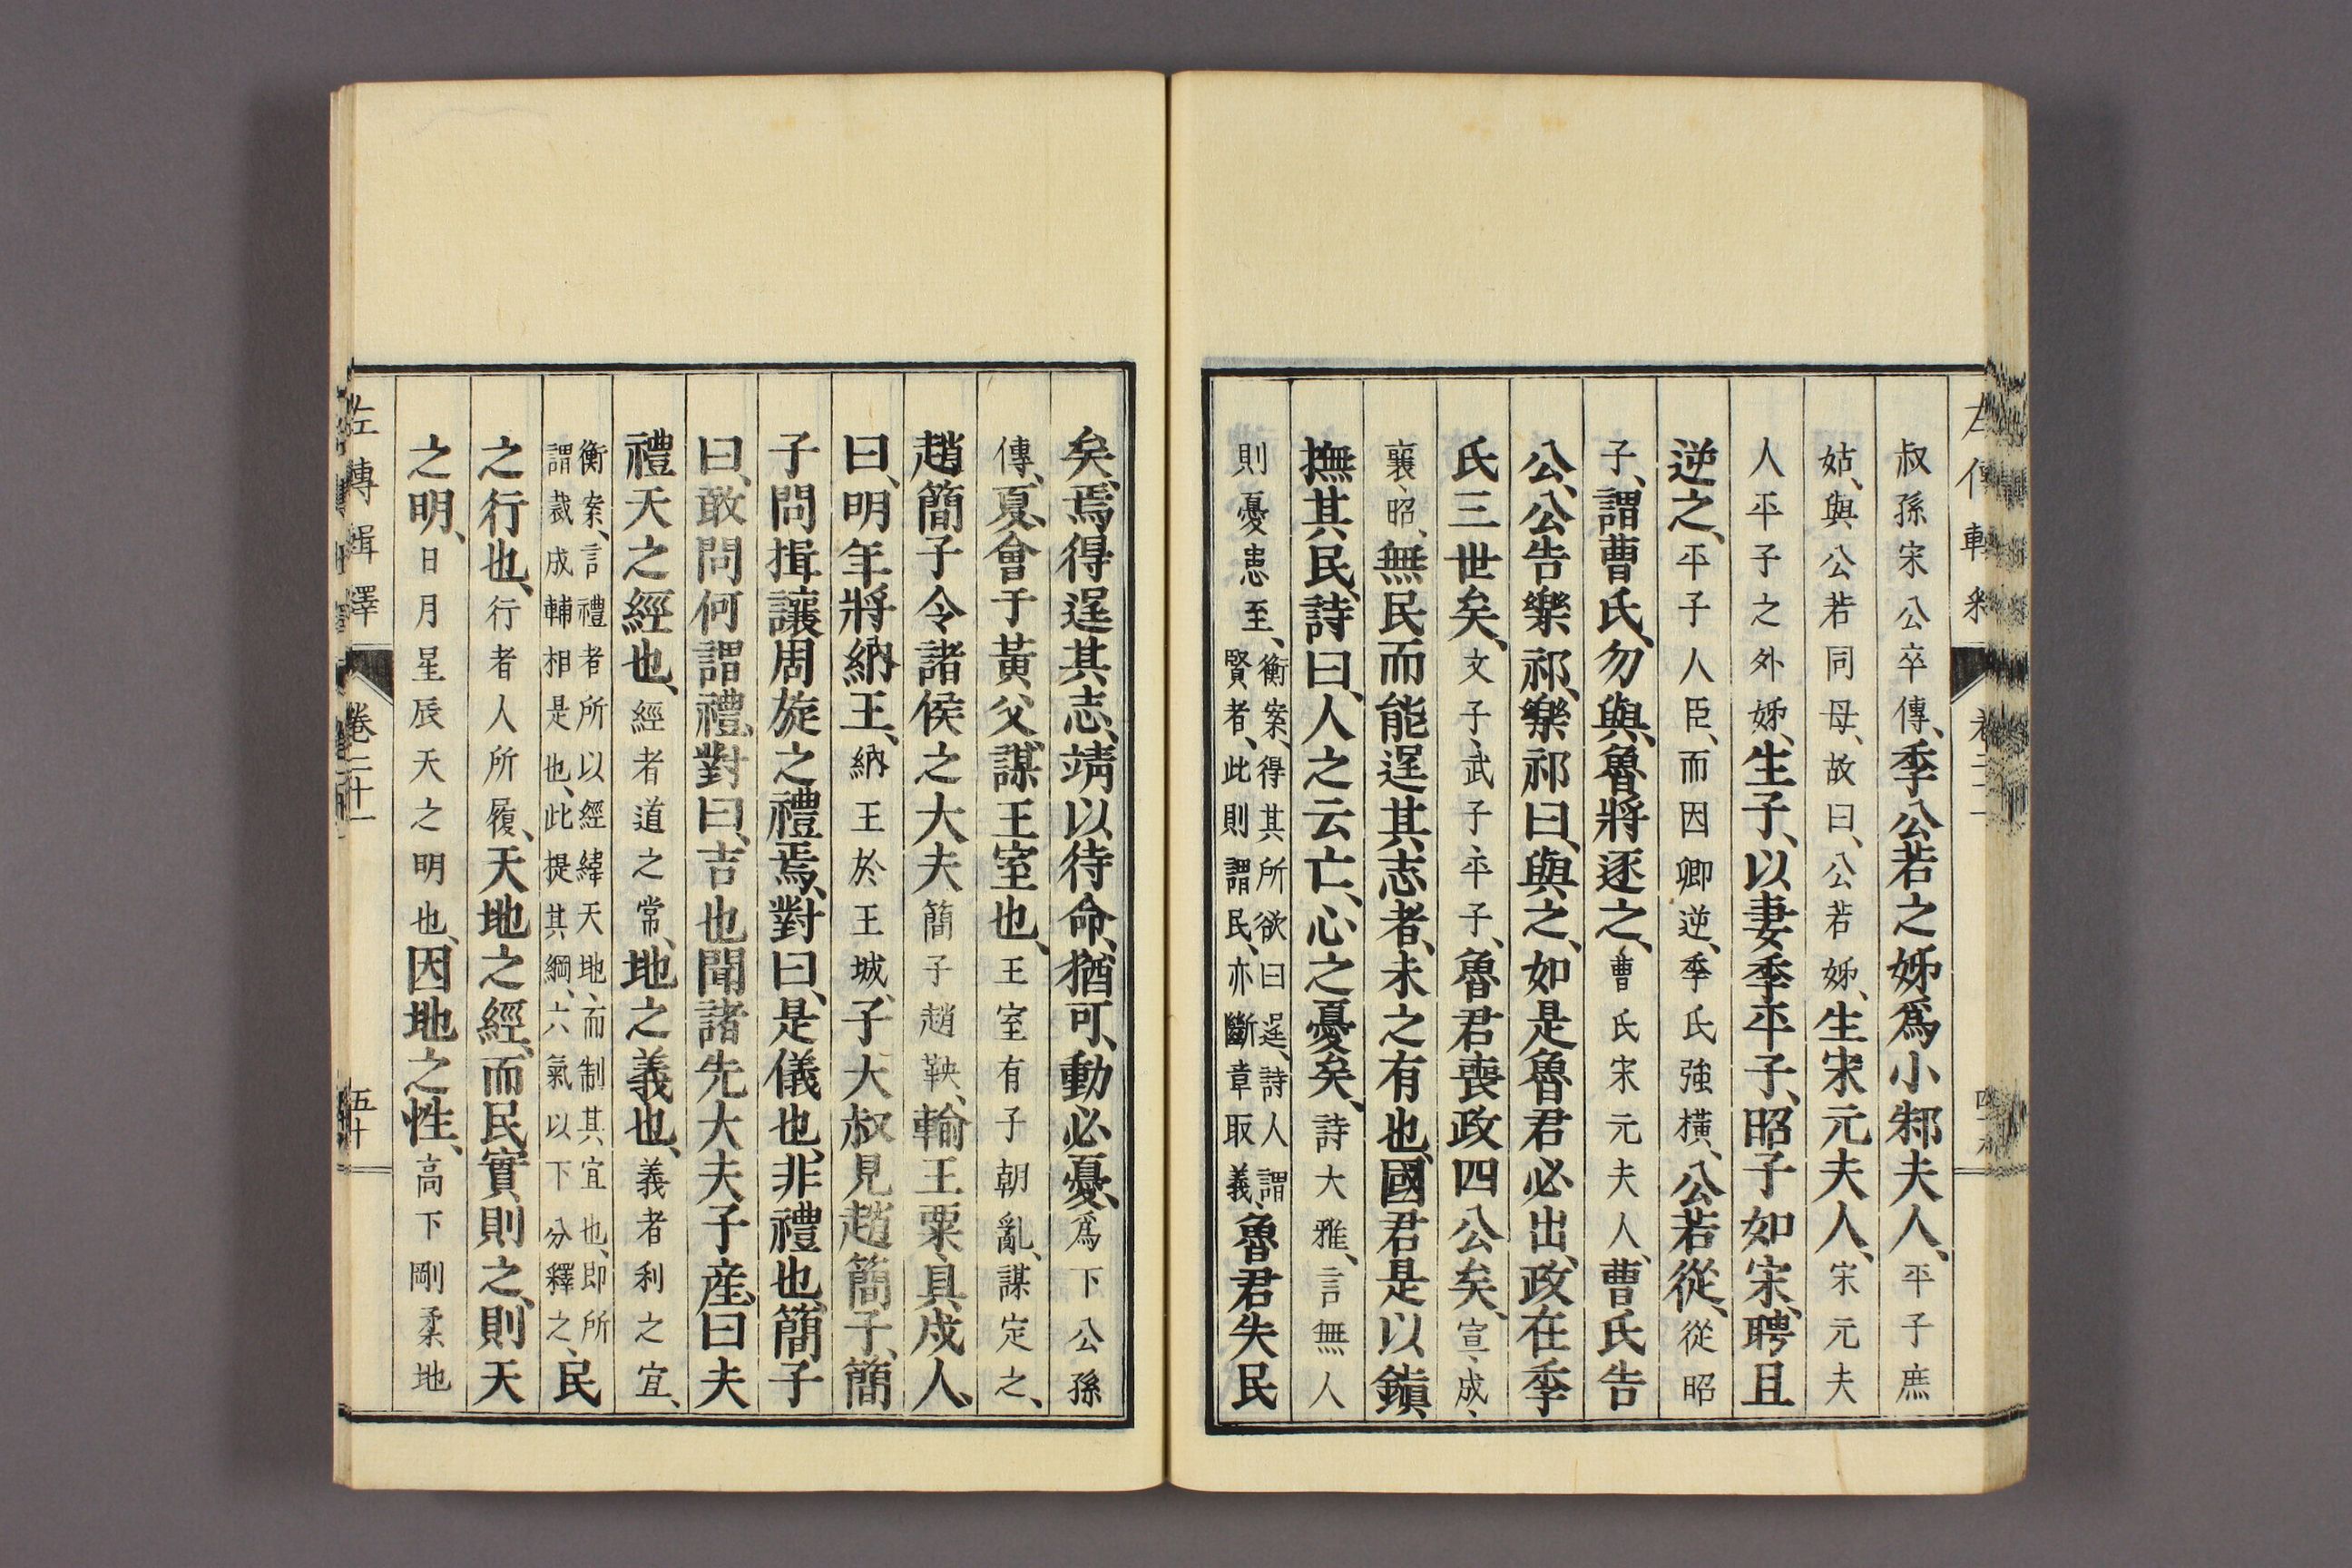 叔孫宋公卒傳、季公若之姊爲小邾夫人、平子庶
姑、與公若同母、故曰、公若姊、生宋元夫人、宋元夫
人平子之外姊、生子、以妻季平子、昭子如宋、聘且
逆之、平子人臣、而因卿逆、季氏強橫、公若從、從昭
子、謂曹氏、勿與、魯將逐之、曹氏宋元夫人、曹氏告
公、公告樂祁、樂祁曰、與之、如是魯君必出、政在季
氏三世矣、文子、武子、平子、魯君喪政四公矣、宣、成、
襄、昭、無民而能逞其志者、未之有也、國君是以鎮
撫其民、詩曰、人之云亡、心之憂矣、詩大雅、言無人
則憂患至、衡案、得其所欲曰逞、詩人謂賢者、此則謂民、亦斷章取義、魯君失民
矣、焉得逞其志、靖以待命、猶可、動必憂、爲下公孫
傳、夏、會于黃父、謀王室也、王室有子朝亂、謀定之、
趙簡子令諸侯之大夫簡子趙鞅、輸王粟、具戍人、
曰、明年將納王、納王於王城、子大叔見趙簡子、簡
子問揖讓周旋之禮焉、對曰、是儀也、非禮也、簡子
曰、敢問何謂禮、對曰、吉也聞諸先大夫子產、曰夫
禮天之經也、經者道之常、地之義也、義者利之宜、
衡案、言禮者所以經緯天地、而制其宜也、即所謂裁成輔相是也、此提其綱、六氣以下分釋之、民
之行也、行者人所履、天地之經、而民實則之、則天
之明、日月星辰天之明也、因地之性、高下剛柔地
左傳輯釋 卷二十一 五十